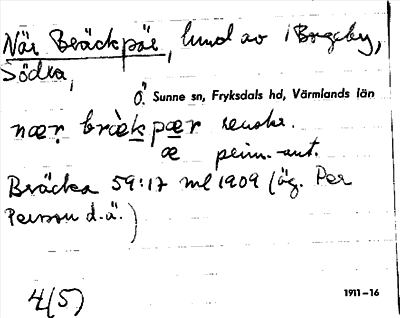 När Bräckpär, lund av i Borgeby,
Södra,
Ö. Sunne sn, Fryksdals hd, Värmlands län
næṛ bræ̀k pær
æ prim.-ant.
Bräcka 59:17 ml 1909 (äg. Per
Person d.ä.)
4(5) 1911–16